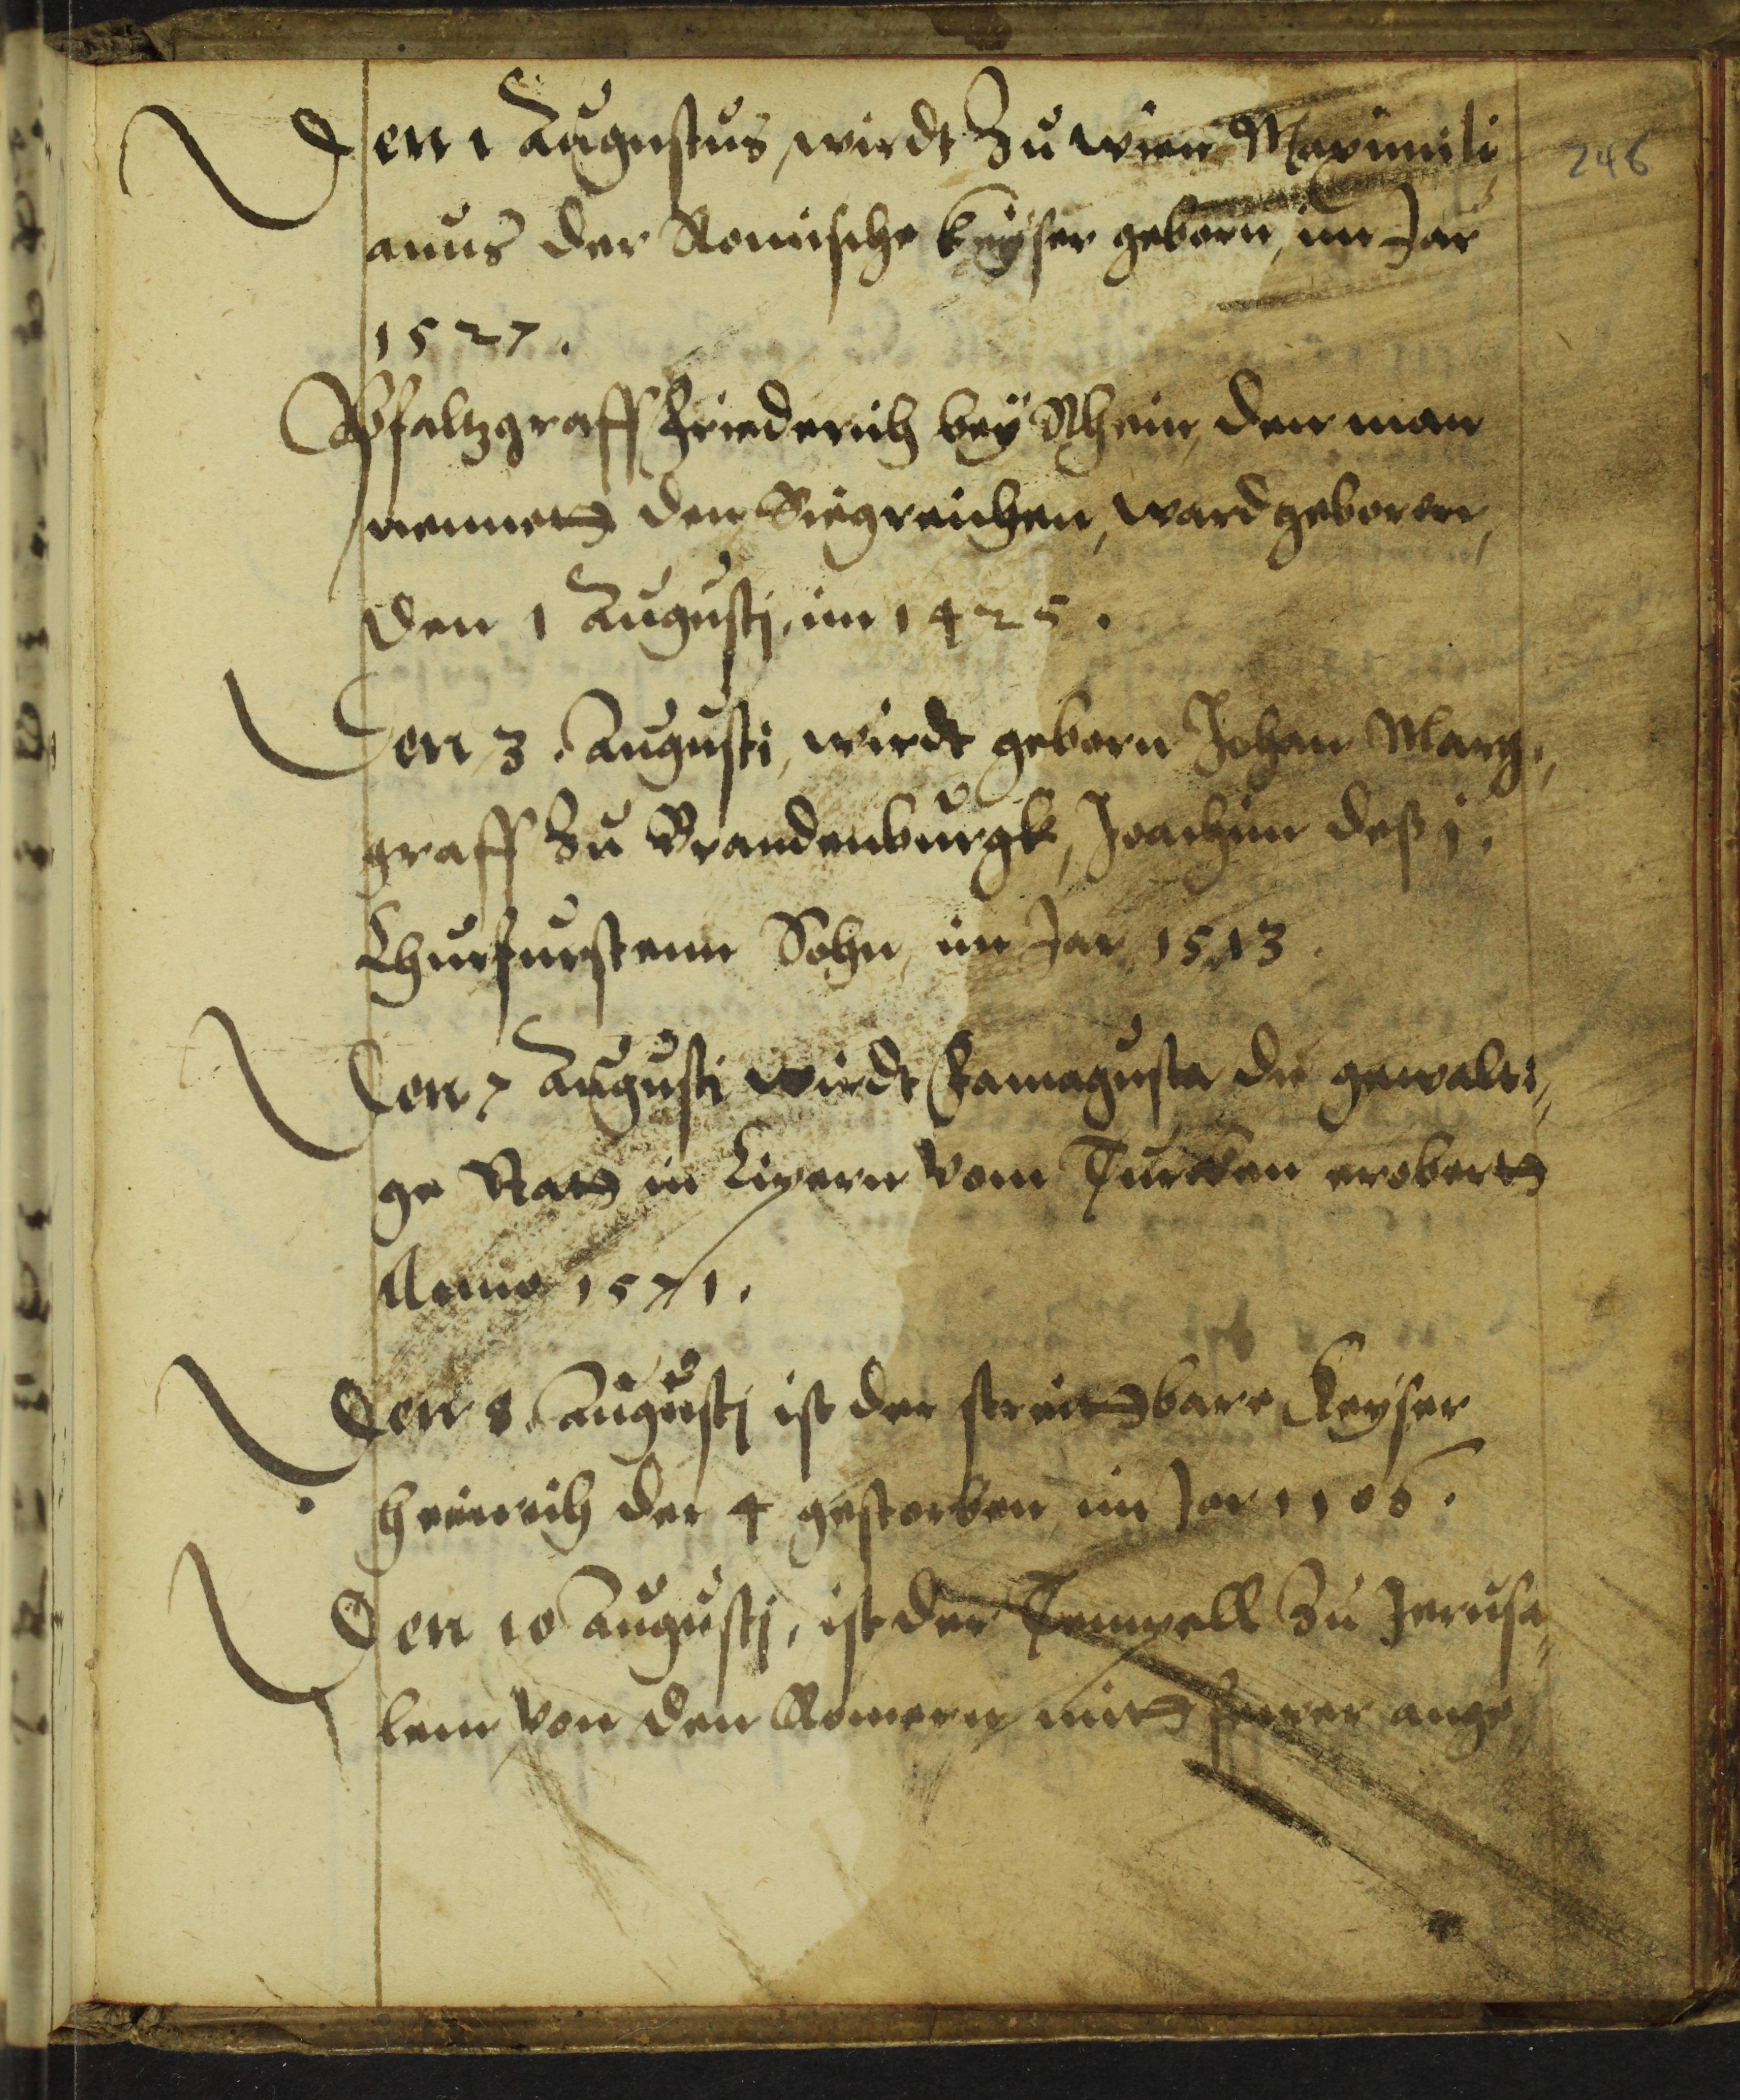 246
Den 1 Augustus, wirdt Zu wien Maximili
anus der Romische keyser geborn, im Jar
1527.
Pfaltzgraff Friederich bey Rhein, den man
nennett den Siegreichen, ward geboren,
den 1 Augustj, im 1425.
Den 3. Augusti, wirdt geborn Johan Marg,,
graff Zu Brandenburgk, Joachim deß j.
Churfurstenn Sohn, im Jar 1513.
Den 7 Augusti wirdt Famagusta die gewalti,,
ge Statt in Cipern vom Turcken erobertt
Anno 1571.
Den 8. Augustj ist der streittbare Keyser
Heinrich der 4 gestorben, im Jar 1106.
Den 10 Augustj, ist der Tempell Zu Jerusa,,
lem von den Romern mitt fewer ange,,